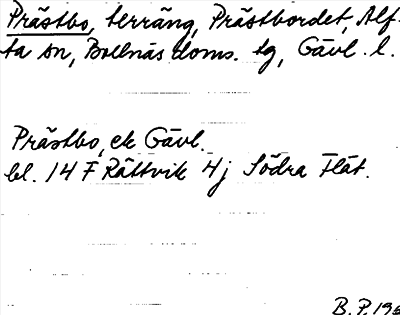 Prästbo, terräng, Prästbordet, Alf-
ta sn, Bollnäs doms. tg, Gävl. l.
Prästbo, ek Gävl.
bl. 14 F Rättvik 4j Södra Flät.
B. P. 195